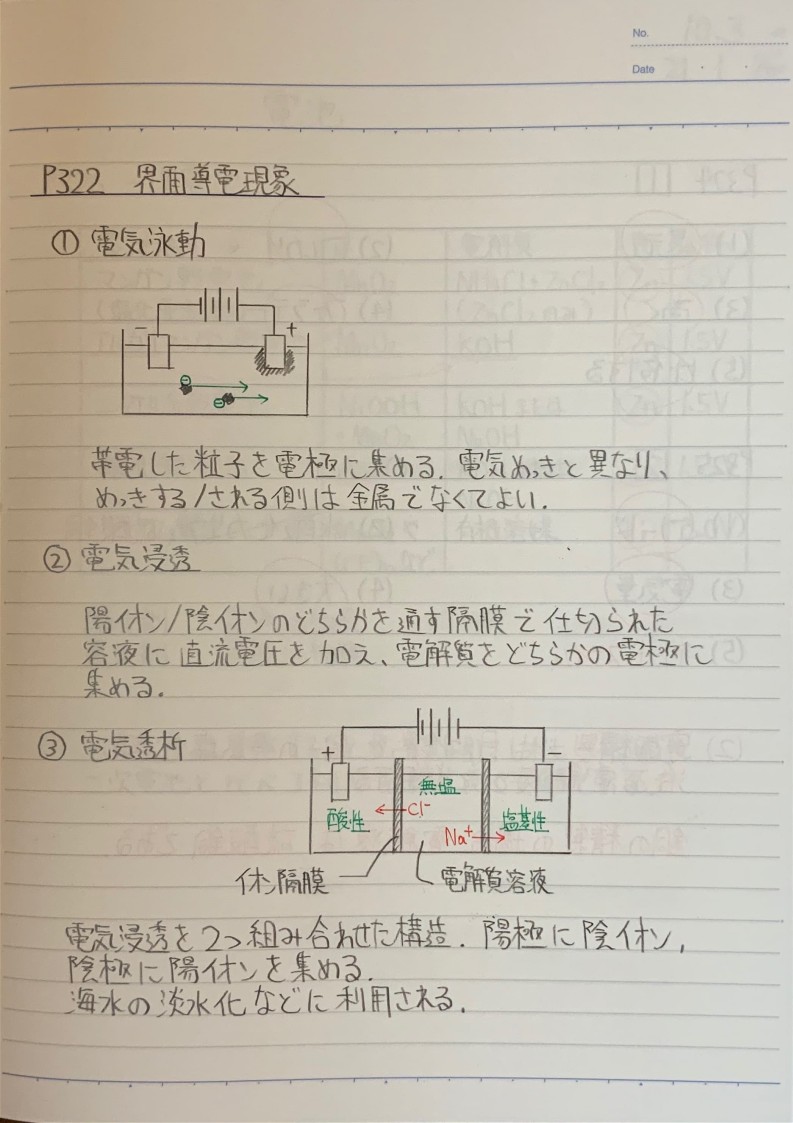 No.
Date
P322 界面導電現象
① 電気泳動
− +
⊖
⊖
帯電した粒子を電極に集める. 電気めっきと異なり、
めっきする/される側は金属でなくてよい.
② 電気浸透
陽イオン/陰イオンのどちらかを通す隔膜で仕切られた
容液に直流電圧を加え、電解質をどちらかの電極に
集める.
③ 電気透析
+ −
無塩
酸性 Cl⁻ 塩基性
Na⁺
イオン隔膜 電解質容液
電気浸透を2つ組み合わせた構造. 陽極に陰イオン,
陰極に陽イオンを集める.
海水の淡水化などに利用される.